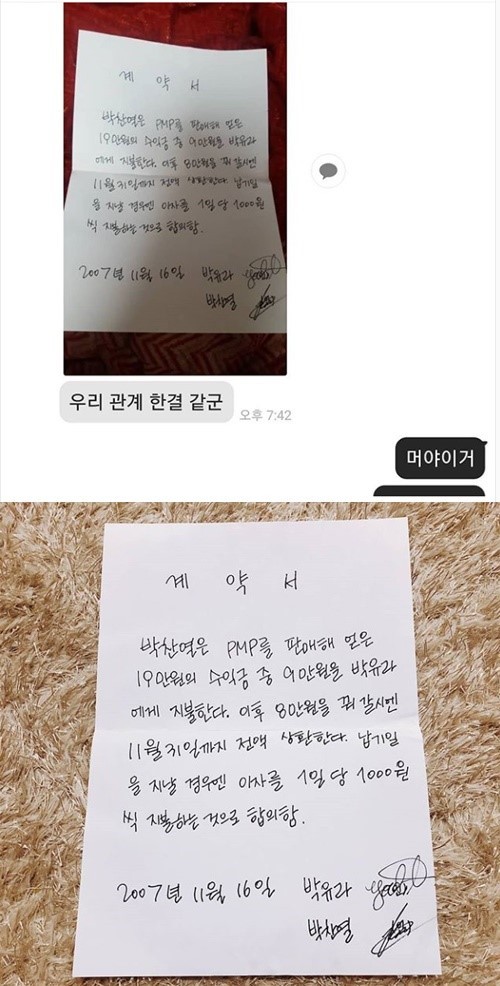 계 약 서
박찬열은 PMP를 판매해 얻은
19만원의 수익금 중 9만원을 박유라
에게 지불한다. 이후 8만원을 꿔 갈시엔
11월 31일까지 전액 상환한다. 납기일
을 지날 경우엔 이자를 1일 당 1000원
씩 지불하는 것으로 합의함.
2007년 11월 16일 박유라
박찬열
우리 관계 한결 같군
오후 7:42
머야이거
계 약 서
박찬열은 PMP를 판매해 얻은
19만원의 수익금 중 9만원을 박유라
에게 지불한다. 이후 8만원을 꿔 갈시엔
11월 31일까지 전액 상환한다. 납기일
을 지날 경우엔 이자를 1일 당 1000원
씩 지불하는 것으로 합의함.
2007년 11월 16일 박유라
박찬열